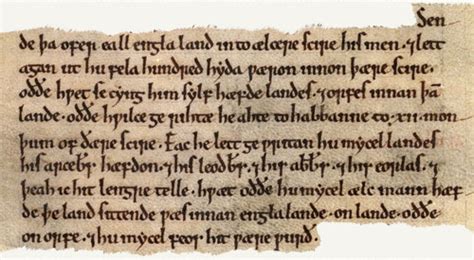 Sen
de þa ofer eall engla land into ælcere scire his men. ⁊ lett
agan ut hu fela hundred hyda pæron innon þære scire.
oððe hƿet se cyng him sylf hæfde landes. ⁊ orfes innan þā
lande. oððe hƿilce gerihtæ he ahte to habbanne to .xii. mon
þum of ðære scire. Eac he lett geƿritan hu mycel landes
his arceb̄. hæfdon. ⁊ his leodb̄. ⁊ his abb̄. ⁊ his eorlas. ⁊
þeah ic hit lengre telle. hƿæt oððe hu mycel ælc mann hæf
de þe land sittende ƿæs innan engla lande. on lande. oððe
on orfe. ⁊ hu mycel feoh hit ƿære ƿurð.